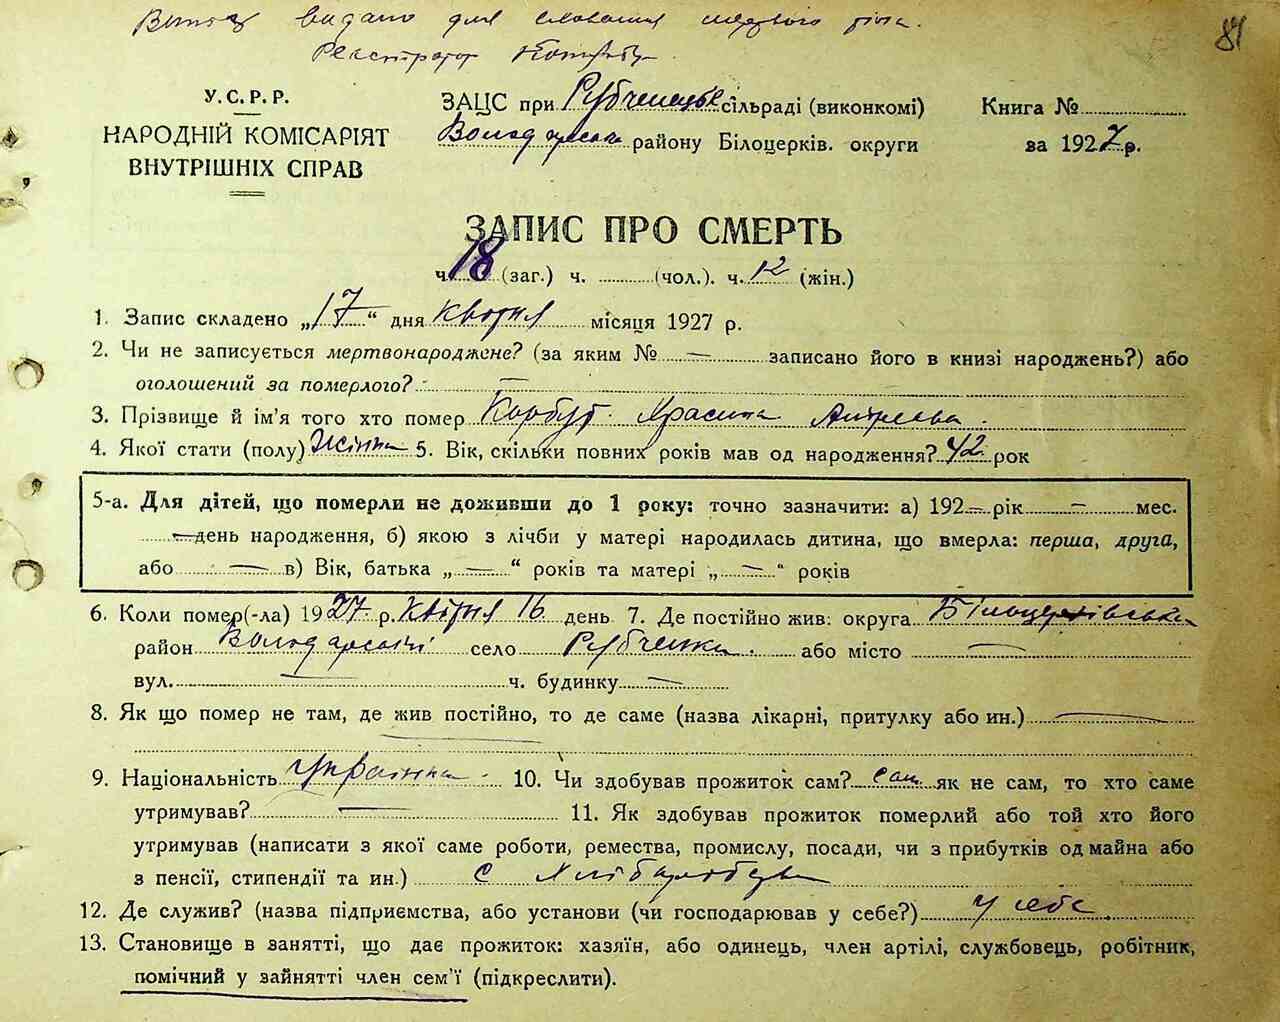 видано для мертвого тіла.
Реєстратор
81
У.С.Р.Р.
НАРОДНІЙ КОМІСАРІЯТ
ВНУТРІШНІХ СПРАВ
ЗАЦС при Рубченецьк. сільраді (виконкомі)
Володарськ. району Білоцерків. округи
Книга №
за 1927 р.
ЗАПИС ПРО СМЕРТЬ
ч. 18 (заг.) ч. (чол.). ч. 12 (жін.)
1. Запис складено „17“ дня квітня місяця 1927 р.
2. Чи не записується мертвонароджене? (за яким № — записано його в книзі народжень?) або
оголошений за померлого? —
3. Прізвище й ім'я того хто помер Корбут
4. Якої стати (полу) Жінка 5. Вік, скільки повних років мав од народження? 42 рок
5-а. Для дітей, що померли не доживши до 1 року: точно зазначити: а) 192— рік — мес.
— день народження, б) якою з лічби у матері народилась дитина, що вмерла: перша, друга,
або — в) Вік, батька „—“ років та матері „—“ років
6. Коли помер(-ла) 1927 р. Квітня 16 день 7. Де постійно жив: округа Білоцерківська
район Володарський село Рубченки. або місто —
вул. — ч. будинку —
8. Як що помер не там, де жив постійно, то де саме (назва лікарні, притулку або ин.) —
9. Національність Українка. 10. Чи здобував прожиток сам? сам як не сам, то хто саме
утримував? — 11. Як здобував прожиток померлий або той хто його
утримував (написати з якої саме роботи, ремества, промислу, посади, чи з прибутків од майна або
з пенсії, стипендії та ин.) с
12. Де служив? (назва підприємства, або установи (чи господарював у себе?) у себе.
13. Становище в занятті, що дає прожиток: хазяїн, або одинець, член артілі, службовець, робітник,
помічний у зайнятті член сем'ї (підкреслити).